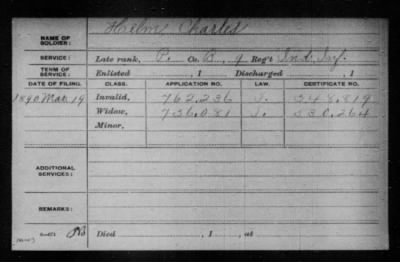 NAME OF SOLDIER: Helm Charles
SERVICE: Late rank, P. Co. B, 9 Reg't Ind. Inf.
TERM OF SERVICE: Enlisted , 1 Discharged , 1
DATE OF FILING. CLASS. APPLICATION NO. LAW. CERTIFICATE NO.
1890 Mar 19 Invalid, 762,236 548,819
Widow, 736,081 530,264
Minor,
ADDITIONAL SERVICES:
REMARKS:
Died , 1 , at